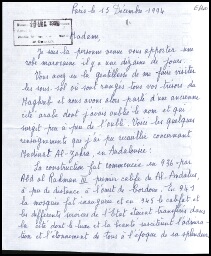 Paris le 15 Décembre 1994
Madame,
Je suis la personne venue vous apporter une
robe marocaine il y a une dizaine de jours.
Vous avez eu la gentillesse de me faire visiter
les sous-sol où sont rangés tous vos trésors du
Maghreb et nous avons alors parlé d'une ancienne
cité arabe dont j'avais oublié le nom et qui
surgit peu à peu de l'oubli. Voici les quelques
renseignements que j'ai pu recueillir concernant
Medinat Al-Zahra, en Andalousie.
La construction fut commencée en 936 par
Abd al Rahman III premier calife de Al Andalus,
à peu de distance à l'ouest de Cordoue. En 941
la mosquée fut inaugurée et en 945 le califat et
les différents services de l'État étaient transférés dans
la cité dont le luxe et la beauté suscitaient l'admira-
tion et l'étonnement de tous à l'époque de sa splendeur.